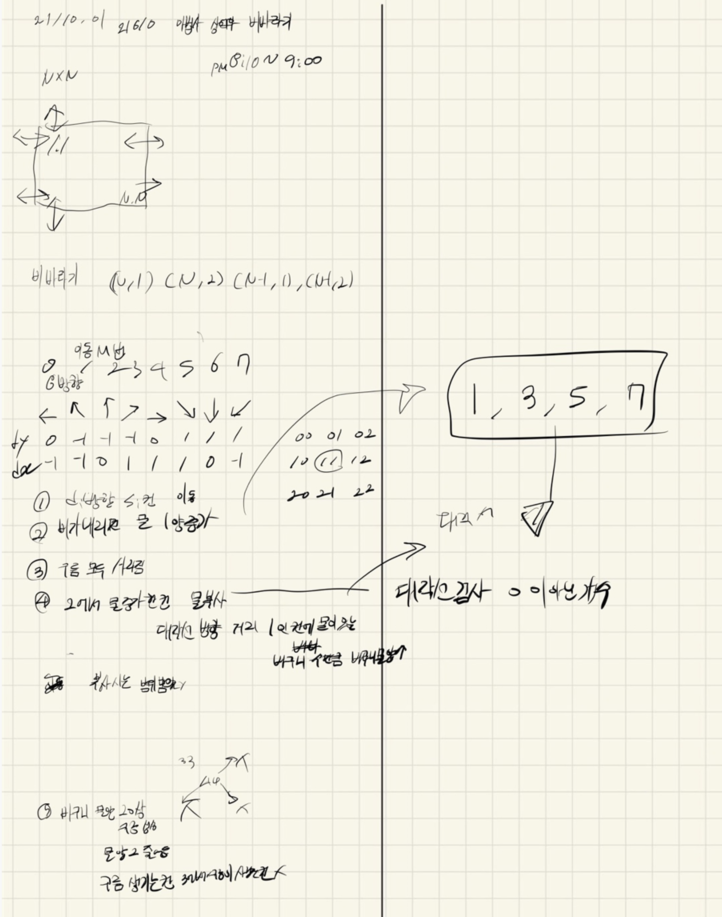 21/10.01 21610 상어와 비바라기
PM 8:10 ~ 9:00
N×N
1.1
N.N
비바라기 (N,1) (N,2) (N-1,1), (N-1,2)
이동 M번
0 1 2 3 4 5 6 7
방향
← ↖ ↑ ↗ → ↘ ↓ ↙
dy 0 -1 -1 -1 0 1 1 1
dx -1 -1 0 1 1 1 0 -1
00 01 02
10 11 12
20 21 22
① di방향 si칸 이동
② 비가내리고 물 1양증가
③ 구름 모두 사라짐
④ 2에서 물증가한칸 물복사
대각선 방향 거리 1인 칸에 물이있는
바구니 수만큼 바구니물양↑
복사시는 범위밖
33
44
⑤ 바구니 물양 2이상
물양 2 줄음
구름 생기는칸 3에서 구름이 사라진칸 X
1, 3, 5, 7
대각선
대각선검사 0이아닌갯수